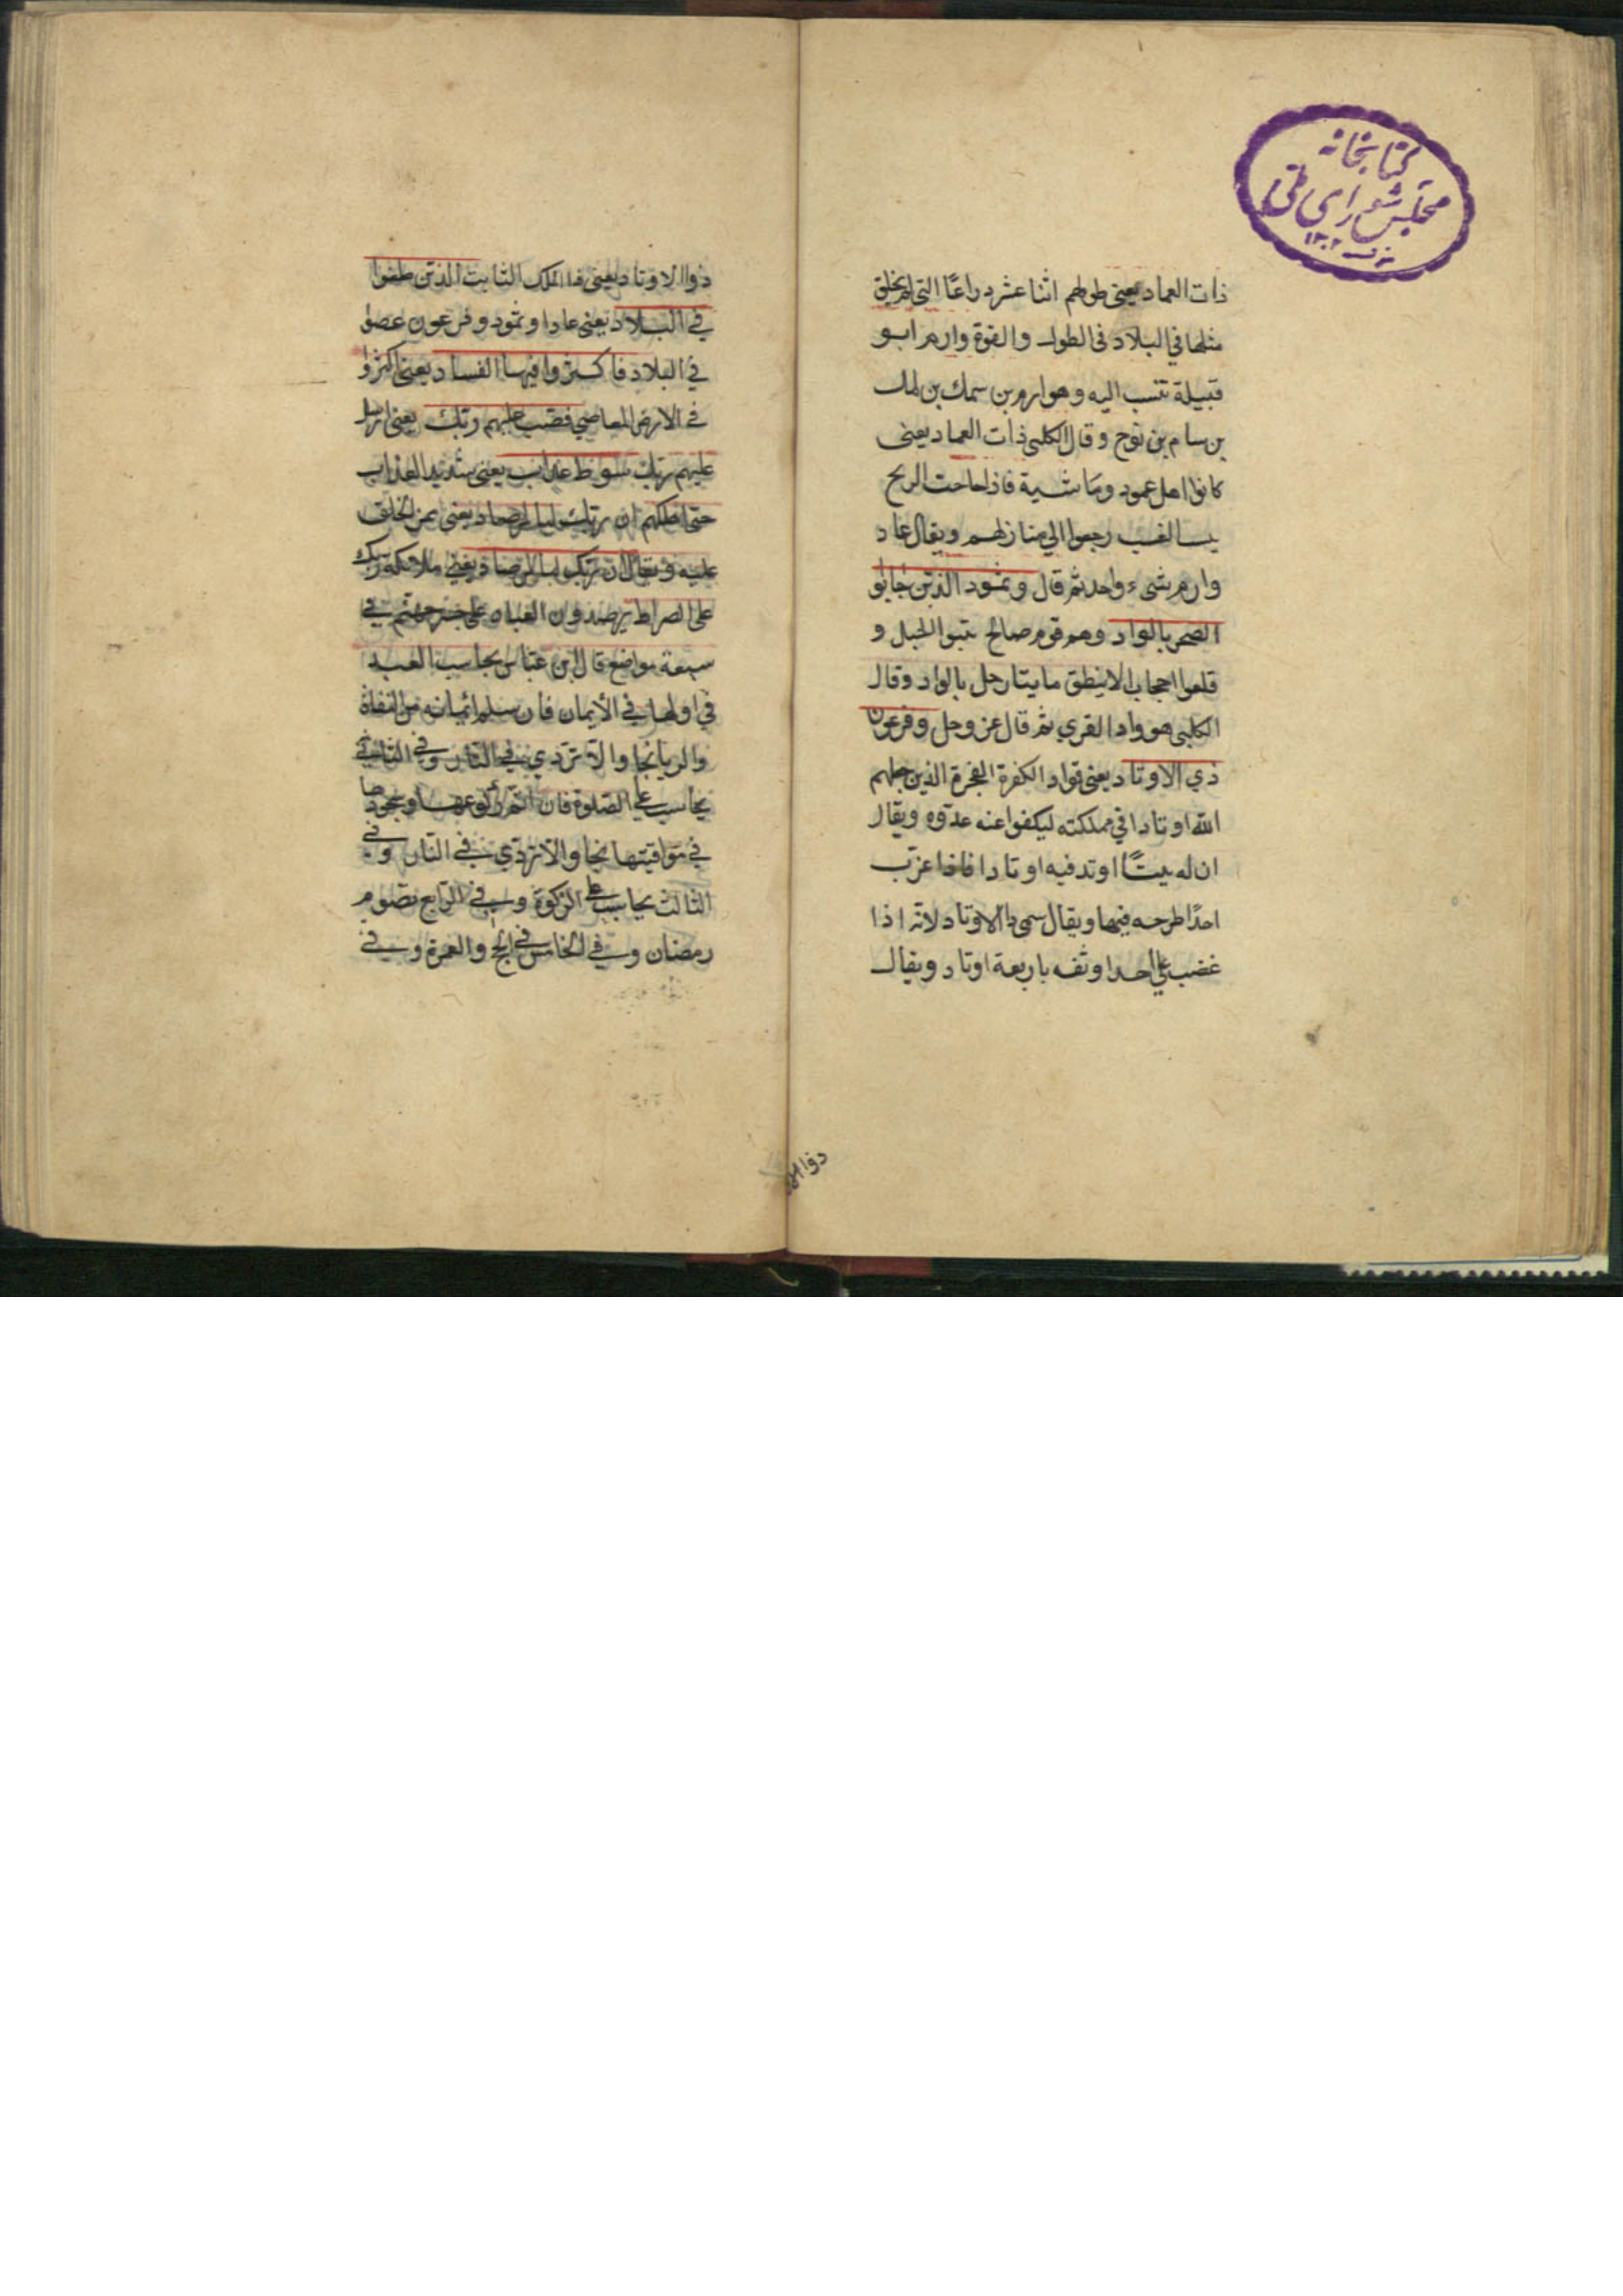 كتابخانه
مجلس شوراي ملي
۱۳۰۲
ذات العماد يعني طولهم اثنا عشر دراعًا التي لم يخلق
مثلها في البلاد في الطول والقوة وارم ابو
قبيلة تنسب اليه وهو ارم بن سمك بن لمك
بن سام بن نوح وقال الكلبي ذات العماد يعني
كانوا اهل عمود وماشية فاذا هاجت الريح
يبس الغيب رجعوا الي منازلهم ويقال عاد
وارم شيء واحد ثم قال وثمود الذين جابوا
الصخر بالواد وهم قوم صالح الجبل و
قلعوا مايتا رجل بالواد وقال
الكلبي هو واد القري ثم قال عز وجل وفرعون
ذي الاوتاد يعني قواد الكفرة الفجرة الذين جعلهم
الله اوتادا في مملكته ليكفوا عنه عدوه ويقال
ان له بيتًا اوتد فيه اوتادا فاذا عزب
احدًا طرحه فيها ويقال سمي ذا الاوتاد لانه اذا
غضب علي احد اوثقه باربعة اوتاد ويقال
ذوا الاوتاد يعني ذا الملك الثابت الذين طغوا
في البلاد يعني عادا وثمود وفرعون عصوا
في البلاد فاكثروا فيها الفساد يعني اكثروا
في الارض المعاصي فصب عليهم ربك يعني ارسل
عليهم ربك سوط عذاب يعني شديد العذاب
حتي اهلكهم ان ربك لبالمرصاد يعني ممر الخلق
عليه ويقال ان ربك لبالمرصاد يعني ملائكة ربك
علي الصراط يرصدون العباد علي جسر جهنم في
سبعة مواضع قال ابن عباس يحاسب العبد
في اولها في الأيمان فان سلم ايمانه من النفاق
والريا نجا والا تردي في النار وفي الثاني
يحاسب علي الصلوة فان اتم ركوعها وسجودها
في مواقيتها نجا والا تردي في النار وفي
الثالث يحاسب علي الزكوة وفي الرابع بصوم
رمضان وفي الخامس في الحج والعمرة وفي